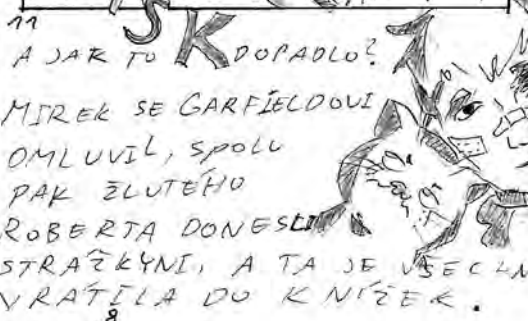 11
SK
A JAK TO DOPADLO?
MIREK SE GARFÍELDOVI
OMLUVIL, SPOLU
PAK ŽLUTÉHO
ROBERTA DONESLI
STRAŽKYNI, A TA JE VŠECHN
VRÁTILA DO KNÍŽEK.
8